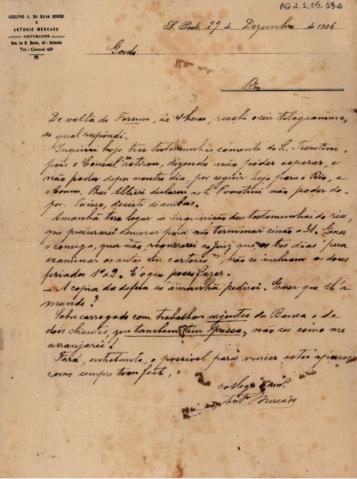 AG 2.1.15.132
ADOLPHO A. DA SILVA GORDO
E
ANTONIO MERCADO
ADVOGADOS
S. Paulo, 29 de Dezembro de 1906
Gordo
Rio
De volta do Forum, ás 4 horas, recebi o seu telegramma,
ao qual respondi.
Inquiri hoje tres testemunhas
pois o Consul retirou, dizendo não poder esperar, e
não poder depor noutro dia, por seguir hoje para o Rio, e
o Comm. declarou a não poder de-
por. de ambas.
Amanhã tera logar a inquirição das testemunhas do réo,
que procurarei demorar para não terminar sinão a 31. Quer
o comigo, que não requererei ao Juiz que os tres dias "para
examinar os autos em cartorio" não se incluam os dous
feriados 1º e 2. É o que posso fazer.
A copia da defesa só amanhã pedirei. Quer que lh'a
mande?
Sobrecarregado com trabalhos urgentes do Banco e de
dois clientes, que tambem tem pressa, não sei como me
arranjarei!
Fará, entretanto, o possivel para vencer estes apuros,
como sempre tem feito, o
collega e am.º
Ant. Mercado